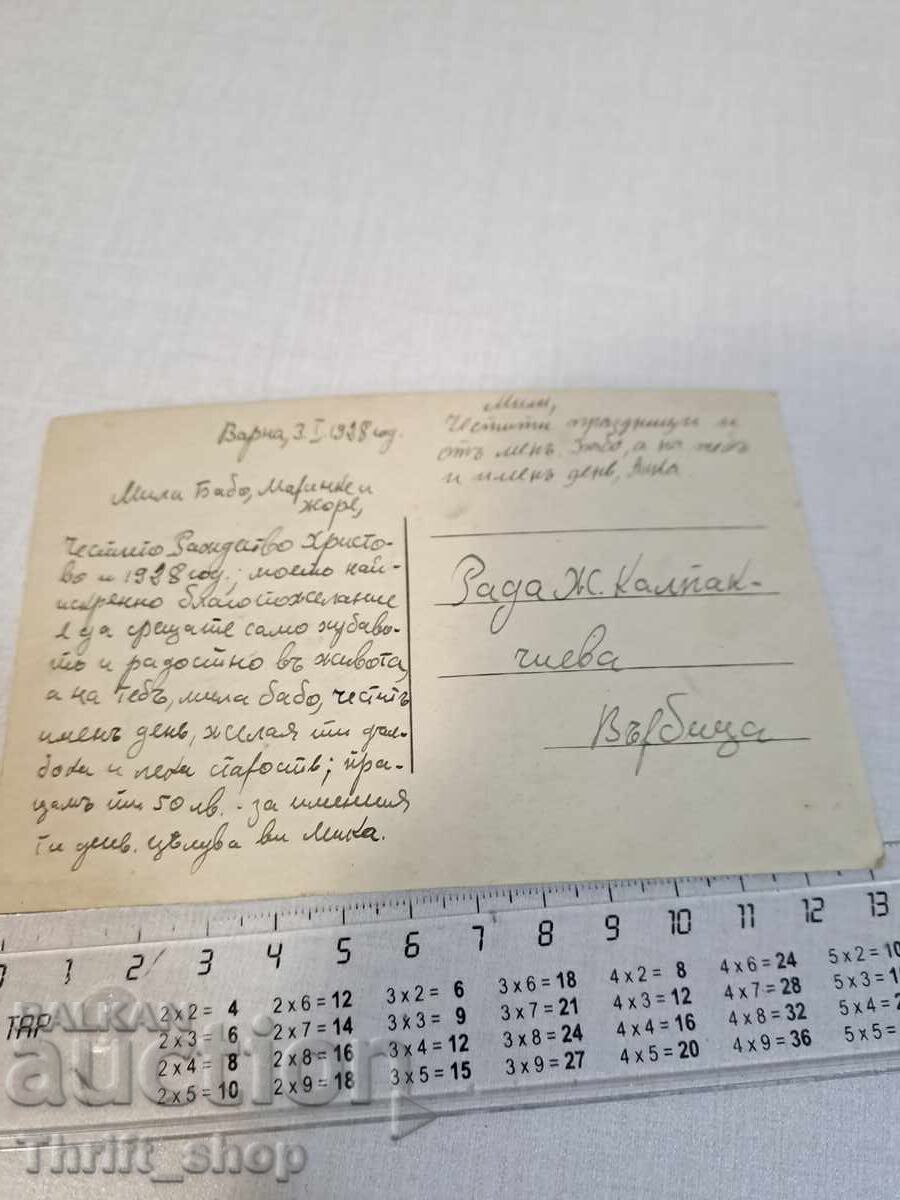 Варна, 3.I.1928 год.
Мили Бабо, Маринке и
Жоре,
Честито Рождество Христо-
во и 1928 год.; моето най-
искренно благопожелание
е да срещате само хубаво-
то и радостно въ живота,
а на тебъ, мила бабо, честитъ
именъ день, желая ти дъл-
бока и лека старость; пра-
щамъ ти 50 лв. - за имения
ти день. Цѣлува ви Мика.
Мили,
Честити праздници и
отъ менъ. Бабо, а на тебъ
и именъ день,
Рада Ж. Калпак-
чиева
Върбица
0 1 2 3 4 5 6 7 8 9 10 11 12 13
TAP
2 x 2 = 4
2 x 3 = 6
2 x 4 = 8
2 x 5 = 10
2 x 6 = 12
2 x 7 = 14
2 x 8 = 16
2 x 9 = 18
3 x 2 = 6
3 x 3 = 9
3 x 4 = 12
3 x 5 = 15
3 x 6 = 18
3 x 7 = 21
3 x 8 = 24
3 x 9 = 27
4 x 2 = 8
4 x 3 = 12
4 x 4 = 16
4 x 5 = 20
4 x 6 = 24
4 x 7 = 28
4 x 8 = 32
4 x 9 = 36
5 x 2 = 10
5 x 3 = 1
5 x 4 = 2
5 x 5 =
BALKAN
auction
Thrift_shop